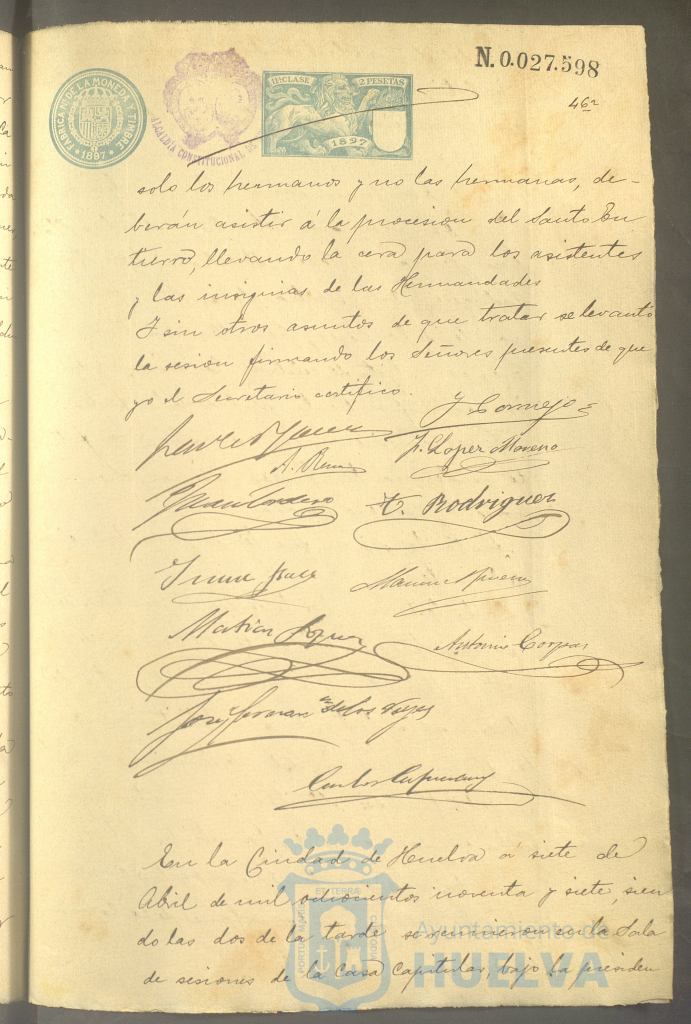 FABRICA NAL DE LA MONEDA Y TIMBRE
1897
ALCALDIA CONSTITUCIONAL DE
11ª CLASE 2 PESETAS
1897
N.0.027.598
46
solo los hermanos y no las hermanas, de-
berán asistir á la procesion del Santo En
tierro, llevando la cera para los asistentes
y las insignias de las Hermandades
Y sin otros asuntos de que tratar se levantó
la sesion firmando los Señores presentes de que
yo el Secretario certifico.
J Cornejo
J. Lopez Moreno
Juan Cordero
Rodriguez
Matias Lopez
Antonio Corpas
Jose German de los Reyes
Carlos
En la Ciudad de Huelva á siete de
Abril de mil ochocientos noventa y siete, sien
do las dos de la tarde se reunieron en la Sala
de sesiones de la Casa Capitular, bajo la presiden
PORTUS MARIS ET TERRAE CUSTODIO
Ayuntamiento de
HUELVA